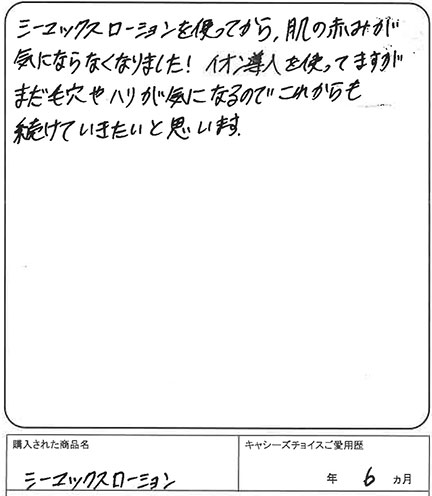 シーエックスローションを使ってから、肌の赤みが
気にならなくなりました! イオン導入を使ってますが
まだ毛穴やハリが気になるのでこれからも
続けていきたいと思います.
購入された商品名
キャシーズチョイスご愛用歴
シーエックスローション
年 6 ヵ月